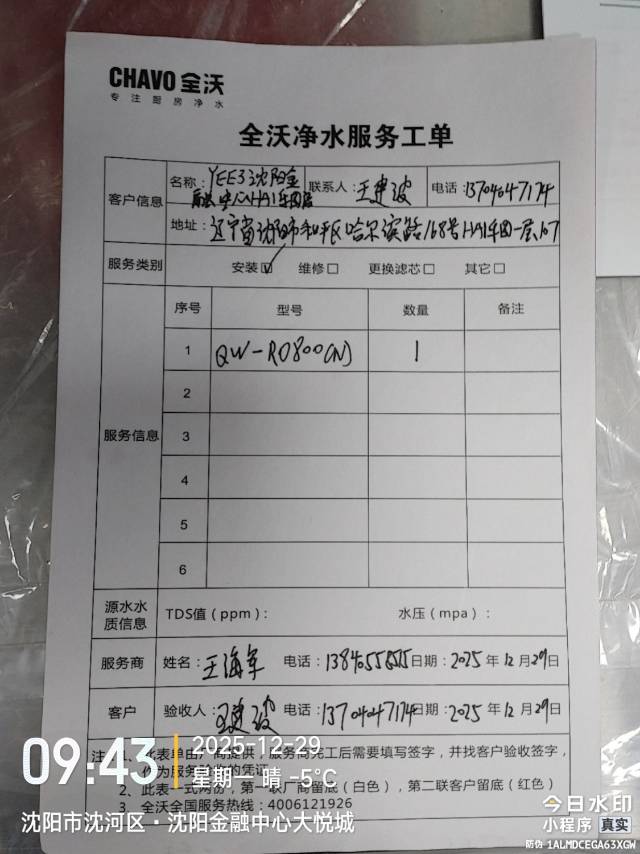 CHAVO 全沃
专注厨房净水
全沃净水服务工单
客户信息
名称：YEE3沈阳金融中心HAI年园店
联系人：王建波
电话：13704047174
地址：辽宁省沈阳市和平区哈尔滨路168号HAI年园一层107
服务类别
安装☑ 维修□ 更换滤芯□ 其它□
服务信息
序号 型号 数量 备注
1 QW-RO800(N) 1
2
3
4
5
6
源水水质信息
TDS值（ppm）： 水压（mpa）：
服务商 姓名：王海军 电话：13840558515 日期：2025年12月29日
客户 验收人：王建波 电话：13704047174 日期：2025年12月29日
注：1、此表单由厂商提供，服务商完工后需要填写签字，并找客户验收签字，
作为服务验收的凭证
2、此表一式两份，第一联厂商留底（白色），第二联客户留底（红色）
3、全沃全国服务热线：4006121926
09:43
2025-12-29
星期一 晴 -5℃
沈阳市沈河区·沈阳金融中心大悦城
今日水印
小程序 真实
防伪 1ALMDCEGA63XGW